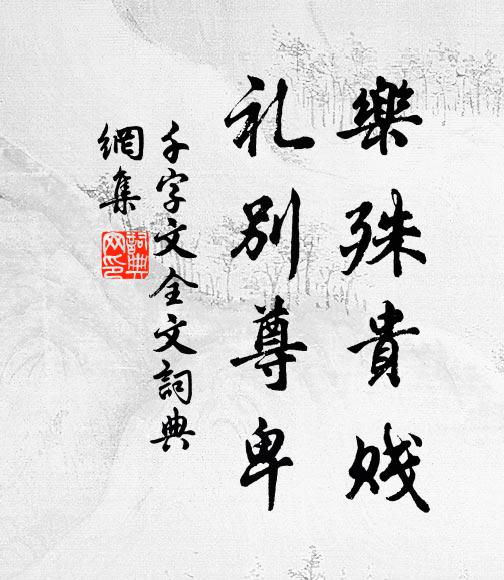 樂殊貴賤
礼別尊卑
千字文全文詞典
網集
詞典
网印